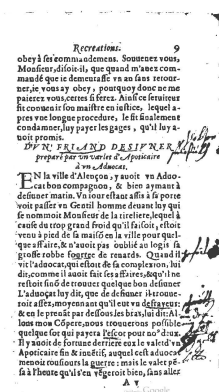 Recreations. 9
obey à ses commandemens. Souuenez vous,
Monsieur, disoit-il, que quand m'auez com-
mandé que ie demeurasse vn an sans retour-
ner, ie vous ay obey, pourquoy donc ne me
paierez vous, certes si ferez. Ainsi ce seruiteur
fit conuenir son maistre en iustice, lequel a-
pres vne longue procedure, le fit finalement
condamner, luy payer les gages, qu'il luy a-
uoit promis.
D'VN FRIAND DESIVNER
preparé par vn varlet d'Apoticaire
à vn Aduocat.
EN la ville d'Alençon, y auoit vn Aduo-
cat bon compagnon, & bien aymant à
desiuner matin. Vn iour estant assis à sa porte
voit passer vn Gentil homme deuant luy qui
se nommoit Monsieur de la tireliere, lequel à
cause du trop grand froid qu'il faisoit, estoit
venu à pied de sa maisō en la ville pour quel-
que affaire, & n'auoit pas oublié au logis sa
grosse robbe fourree de renards. Quand il
vit l'aduocat, qui estoit de sa complexion, luy
dit, comme il auoit fait ses affaires, & qu'il ne
restoit sinō de trouuer quelque bon desiuner
L'aduocat luy dit, que de desiuner il trouue-
roit assez, moyennant qu'il eust vn defrayeur:
& en le prenāt par dessous les bras, luy dit: Al-
lons mon Cōpere, nous trouuerons possible
quelque sot qui payera l'escot pour no9 deux.
Il y auoit de fortune derriere eux le valet d'vn
Apoticaire fin & inuētif, auquel cest aduocat
menoit tousiours la guerre: mais le valet pē-
sa à l'heure qu'il s'en vēgeroit bien, sans aller
A v